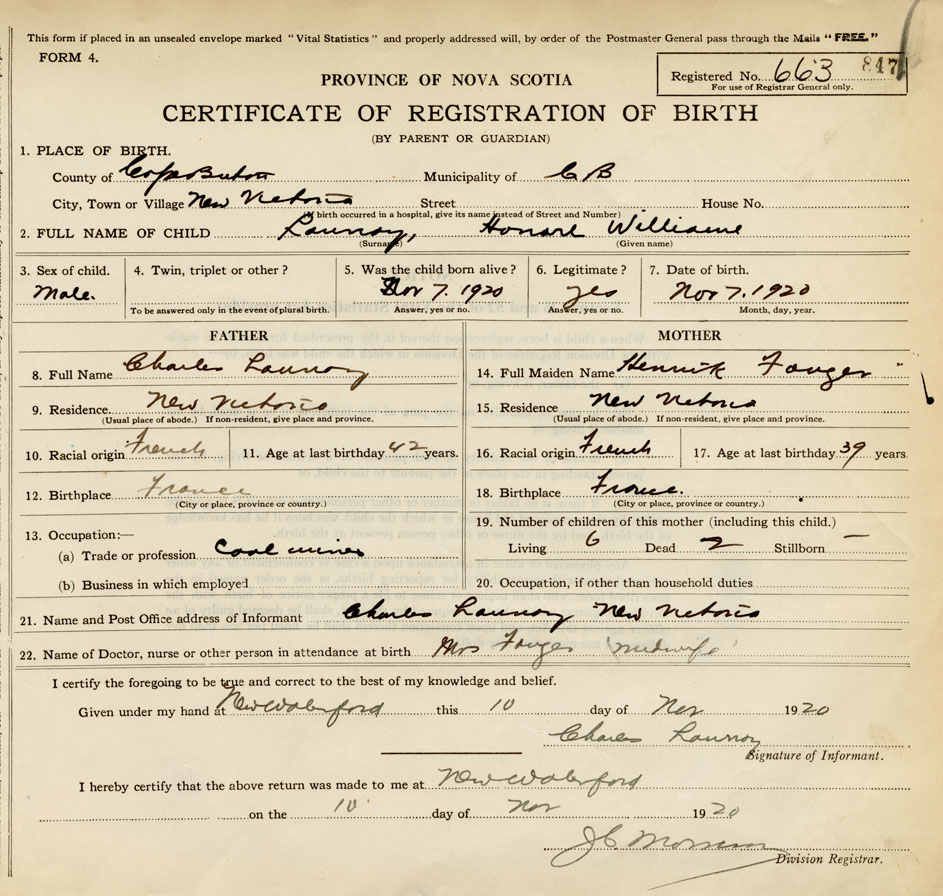 This form if placed in an unsealed envelope marked "Vital Statistics" and properly addressed will, by order of the Postmaster General pass through the Mails "FREE."
FORM 4.
Registered No. 663 847
For use of Registrar General only.
PROVINCE OF NOVA SCOTIA
CERTIFICATE OF REGISTRATION OF BIRTH
(BY PARENT OR GUARDIAN)
1. PLACE OF BIRTH.
County of Cape Breton Municipality of C B
City, Town or Village New Victoria Street House No.
(If birth occurred in a hospital, give its name instead of Street and Number)
2. FULL NAME OF CHILD Launoy, Honoré Williame
(Surname) (Given name)
3. Sex of child. 4. Twin, triplet or other? 5. Was the child born alive? 6. Legitimate? 7. Date of birth.
Male. Nov 7. 1920 yes Nov 7. 1920
To be answered only in the event of plural birth. Answer, yes or no. Answer, yes or no. Month, day, year.
FATHER MOTHER
8. Full Name Charles Launoy 14. Full Maiden Name Fouger "
9. Residence. New Victoria 15. Residence New Victoria
(Usual place of abode.) If non-resident, give place and province. (Usual place of abode.) If non-resident, give place and province.
10. Racial origin French 11. Age at last birthday 42 years. 16. Racial origin French 17. Age at last birthday 39 years.
12. Birthplace France 18. Birthplace France.
(City or place, province or country.) (City or place, province or country.)
13. Occupation:— 19. Number of children of this mother (including this child.)
(a) Trade or profession Coal miner Living 6 Dead 2 Stillborn —
(b) Business in which employed 20. Occupation, if other than household duties
21. Name and Post Office address of Informant Charles Launoy New Victoria
22. Name of Doctor, nurse or other person in attendance at birth Mrs Fouger 'midwife'
I certify the foregoing to be true and correct to the best of my knowledge and belief.
Given under my hand at New Waterford this 10 day of Nov 1920
Charles Launoy
Signature of Informant.
I hereby certify that the above return was made to me at New Waterford
on the 10 day of Nov 1920
J C Morrison
Division Registrar.